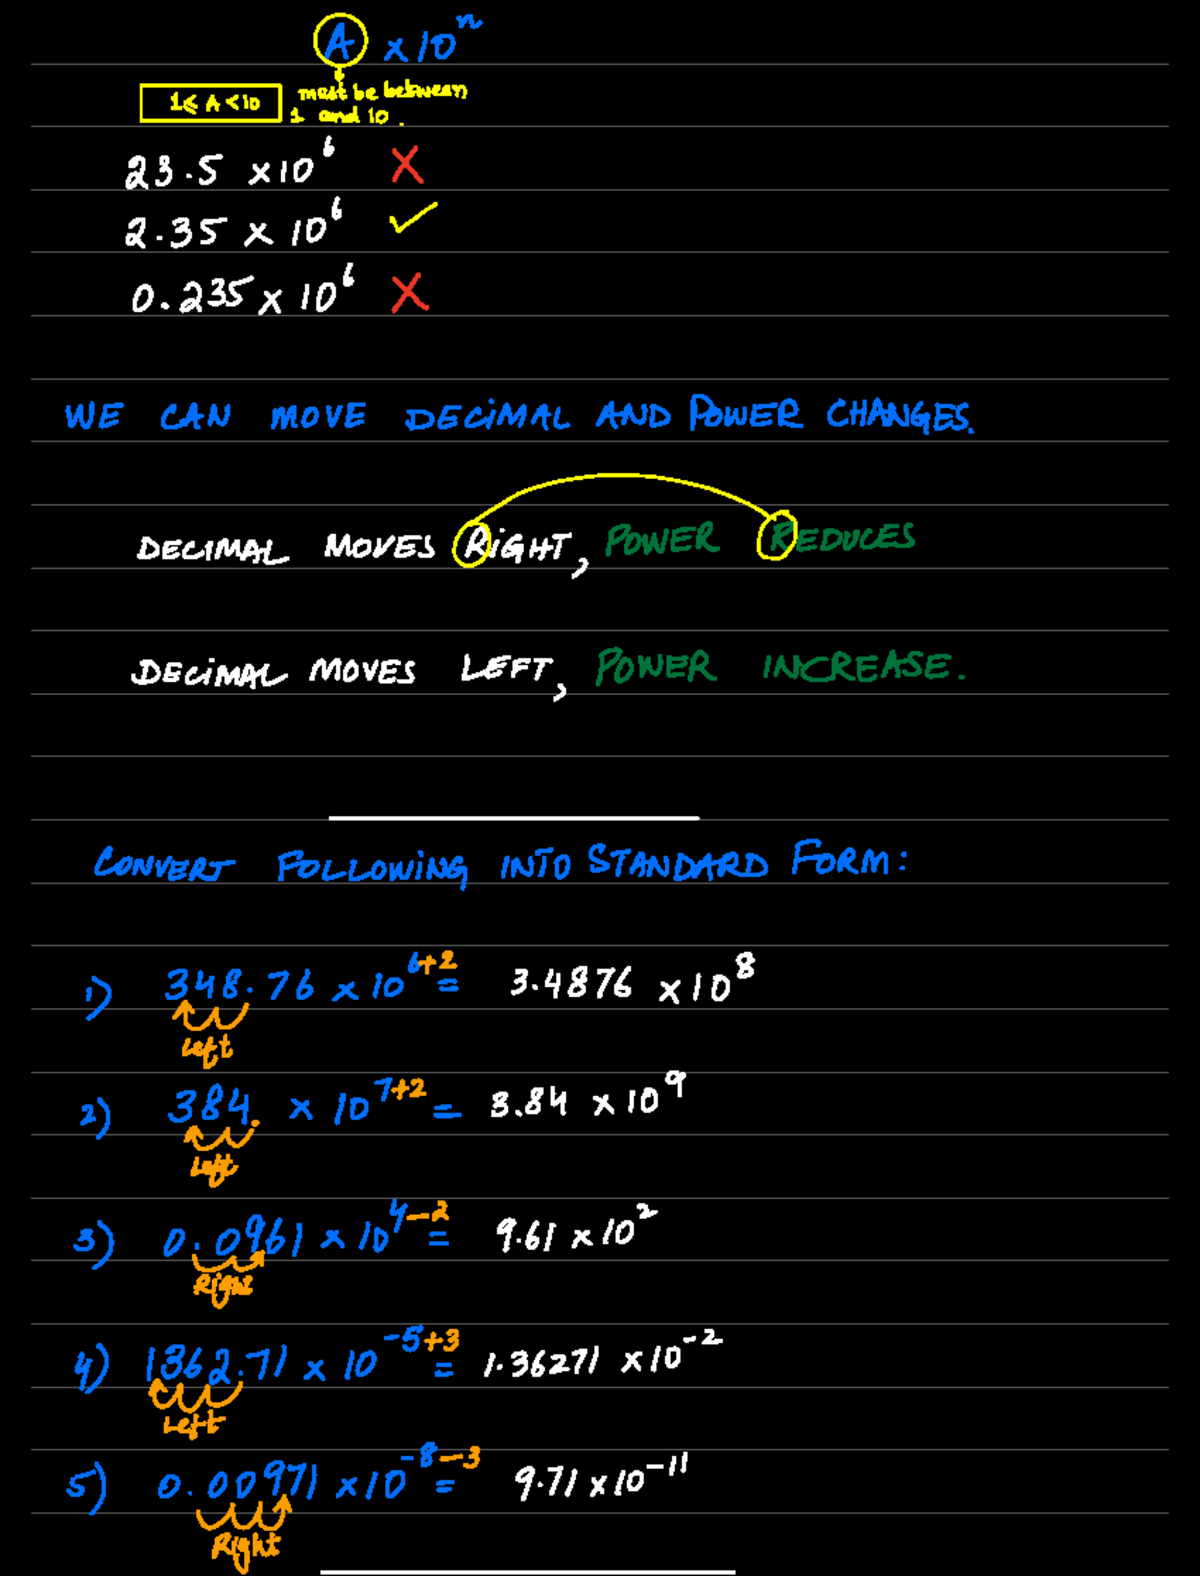 A × 10ⁿ
1 ≤ A < 10 must be between
1 and 10.
23.5 × 10⁶ ✗
2.35 × 10⁶ ✓
0.235 × 10⁶ ✗
WE CAN MOVE DECIMAL AND POWER CHANGES.
DECIMAL MOVES RIGHT, POWER REDUCES
DECIMAL MOVES LEFT, POWER INCREASE.
CONVERT FOLLOWING INTO STANDARD FORM:
1) 348.76 × 10⁶⁺² = 3.4876 × 10⁸
Left
2) 384. × 10⁷⁺² = 3.84 × 10⁹
Left
3) 0.0961 × 10⁴⁻² = 9.61 × 10²
Right
4) 1362.71 × 10⁻⁵⁺³ = 1.36271 × 10⁻²
Left
5) 0.00971 × 10⁻⁸⁻³ = 9.71 × 10⁻¹¹
Right